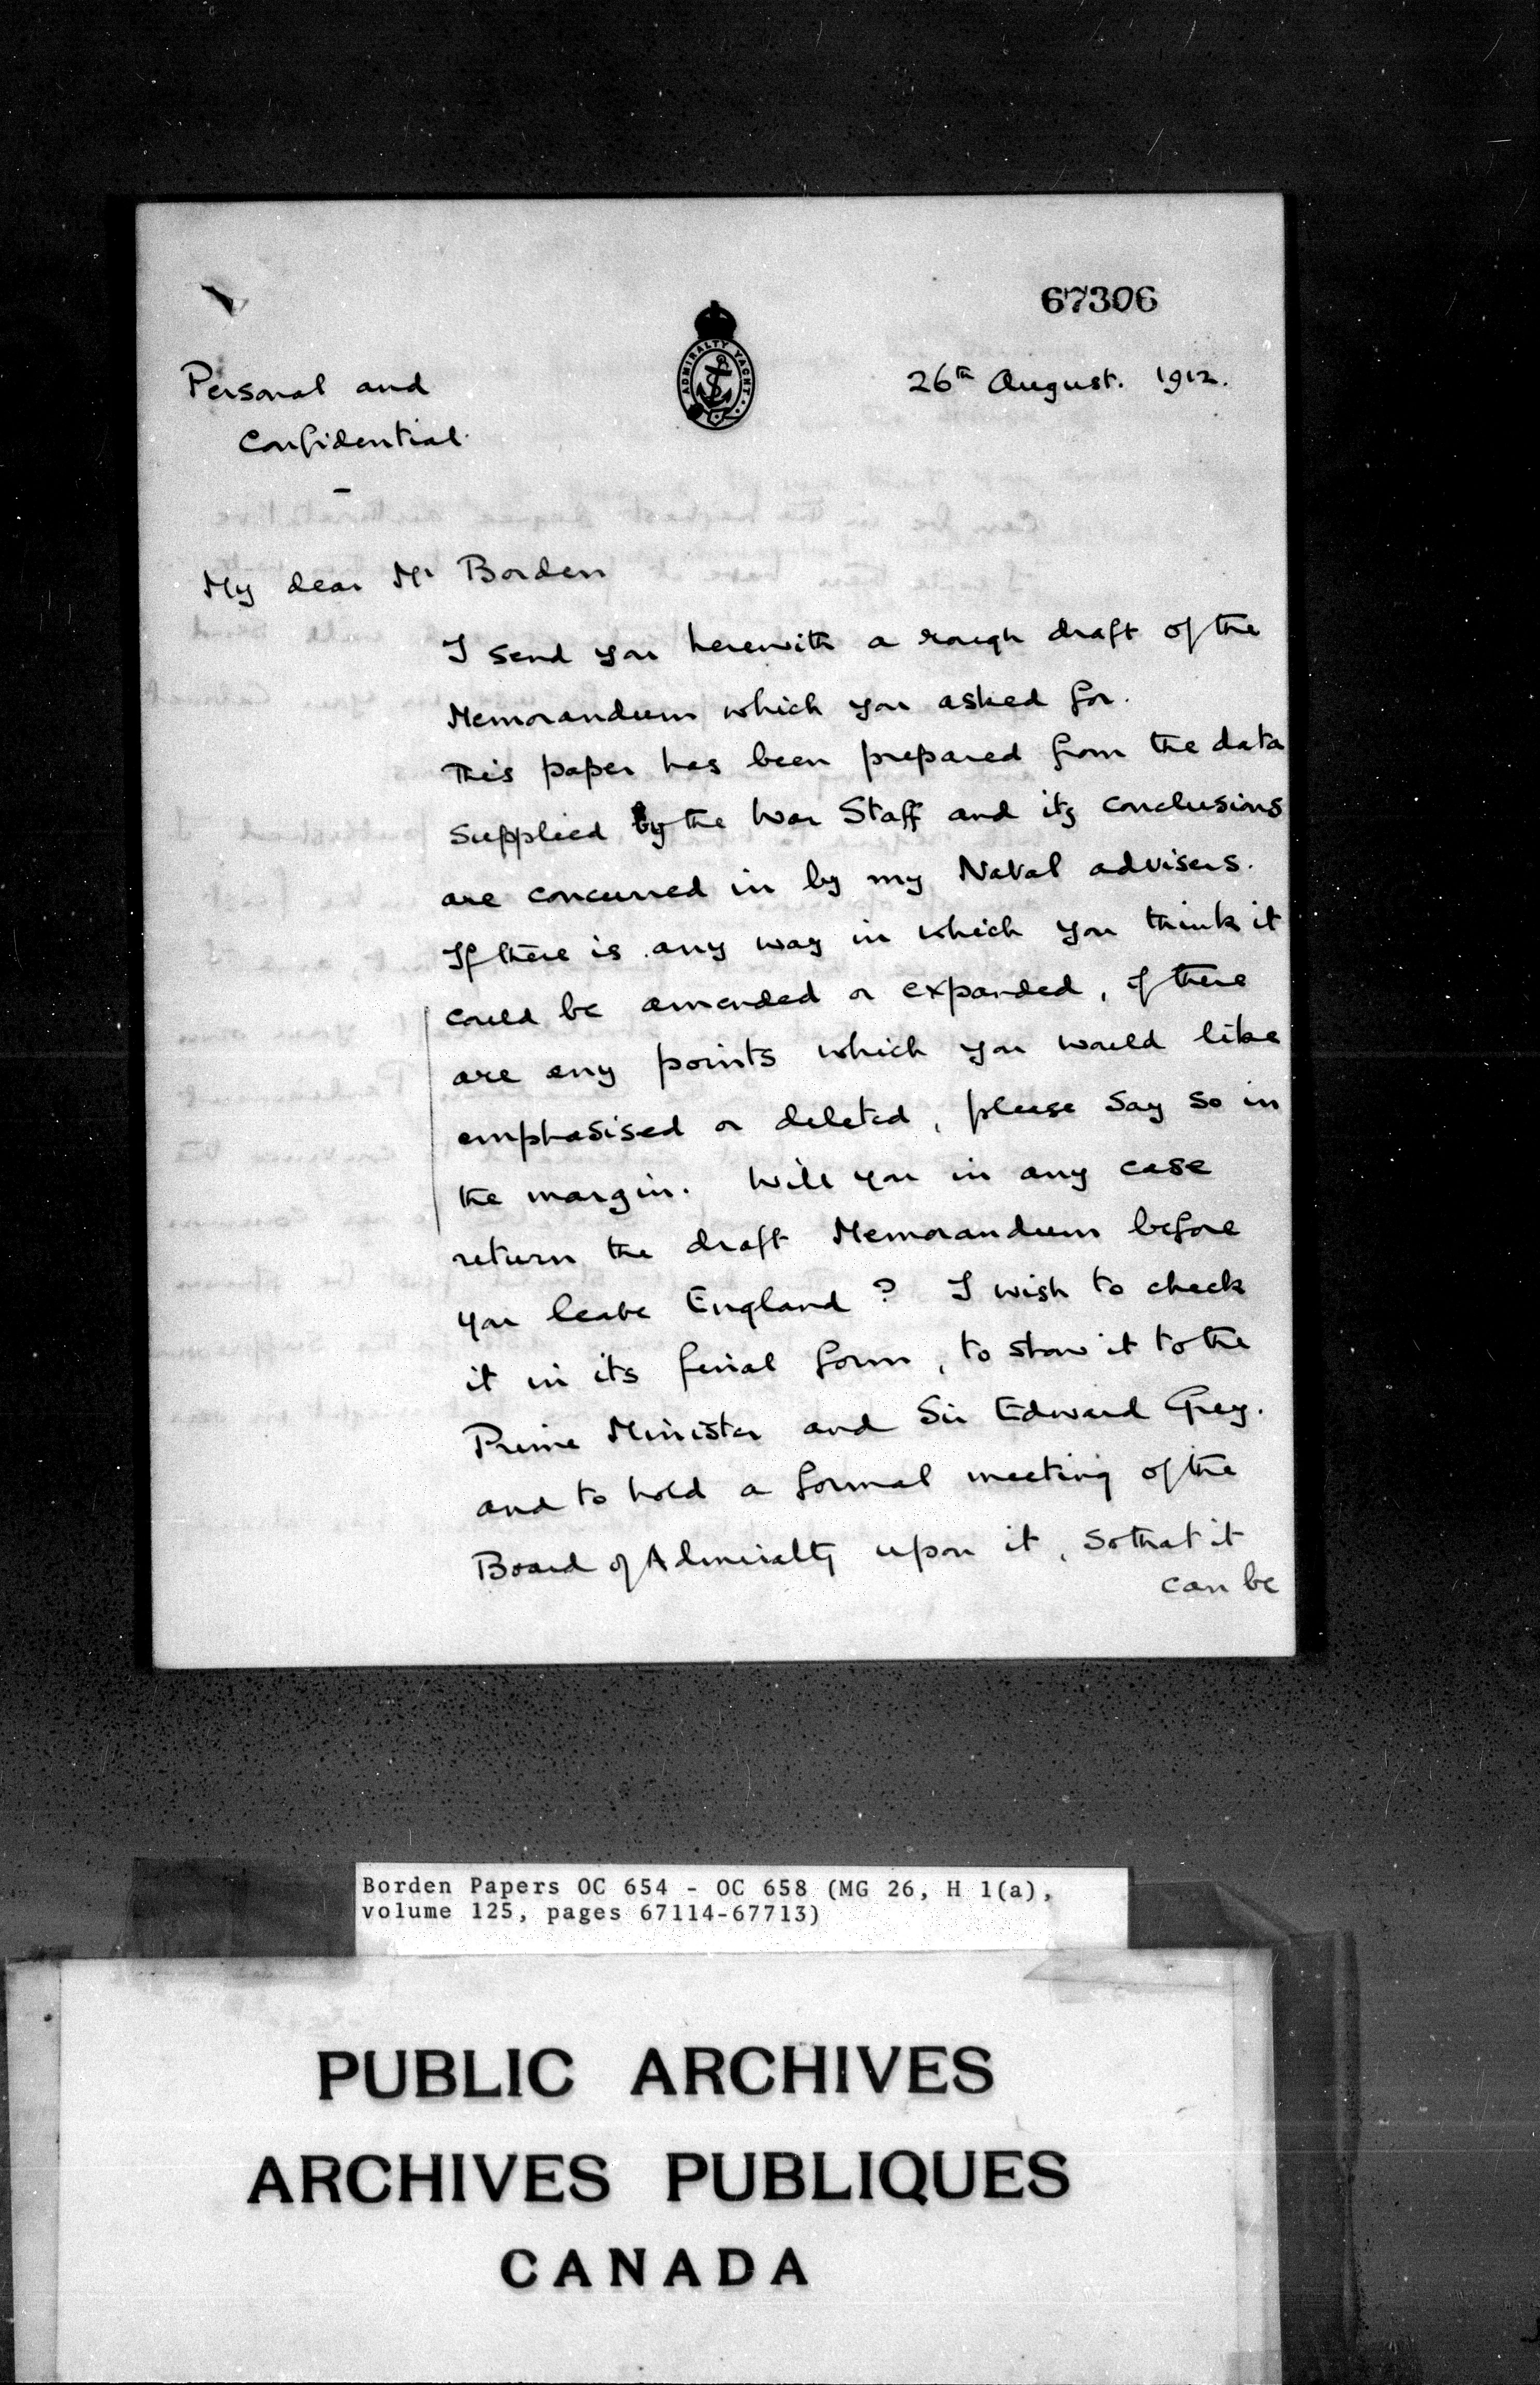 67306
ADMIRALTY YACHT
Personal and
26th August. 1912.
Confidential.
My dear Mr Borden
I send you herewith a rough draft of the
Memorandum which you asked for.
This paper has been prepared from the data
supplied by the War Staff and its conclusions
are concurred in by my Naval advisers.
If there is any way in which you think it
could be amended or expanded, if there
are any points which you would like
emphasised or deleted, please say so in
the margin. Will you in any case
return the draft Memorandum before
you leave England? I wish to check
it in its final form, to show it to the
Prime Minister and Sir Edward Grey.
and to hold a formal meeting of the
Board of Admiralty upon it, so that it
can be
Borden Papers OC 654 - OC 658 (MG 26, H 1(a),
volume 125, pages 67114-67713)
PUBLIC ARCHIVES
ARCHIVES PUBLIQUES
CANADA